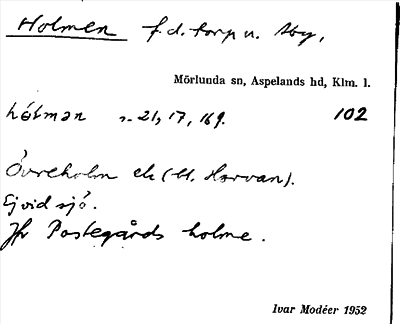 Holmen f.d. torp u. Aby,
Mörlunda sn, Aspelands hd, Klm. l.
hólman 21, 17, 169. 102
Övreholm el. (St. Horvan).
Ej vid sjö.
Jfr Postegårds holme.
Ivar Modéer 1952